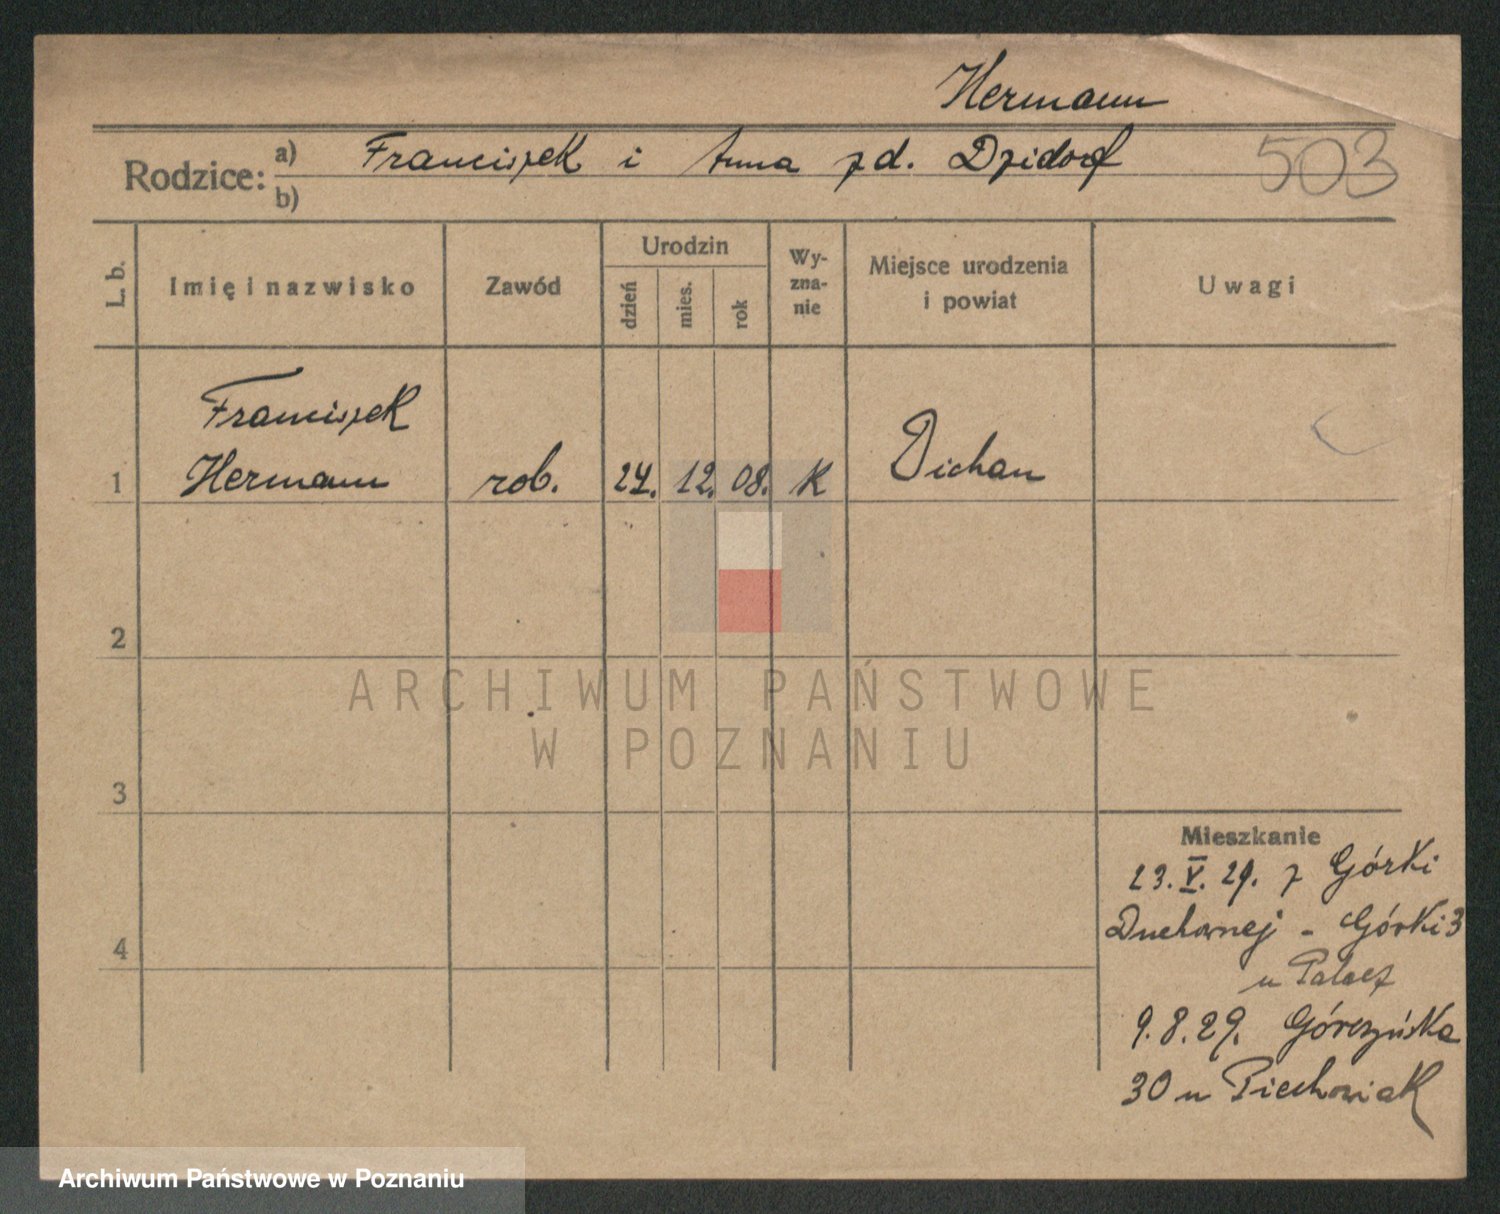 Hermann
Rodzice: a) Franciszek i Anna zd. Dzidorf
b)
503
L. b.
Imię i nazwisko
Zawód
Urodzin
dzień
mies.
rok
Wy-
zna-
nie
Miejsce urodzenia
i powiat
Uwagi
Franciszek
1 Hermann rob. 24. 12. 08. K Dichau
2
3
4
Mieszkanie
23. V. 29. z Górki
Duchownej - Górki 3
u Palacz
9.8.29. Górczyńska
30 u Piechowiak
ARCHIWUM PAŃSTWOWE
W POZNANIU
Archiwum Państwowe w Poznaniu